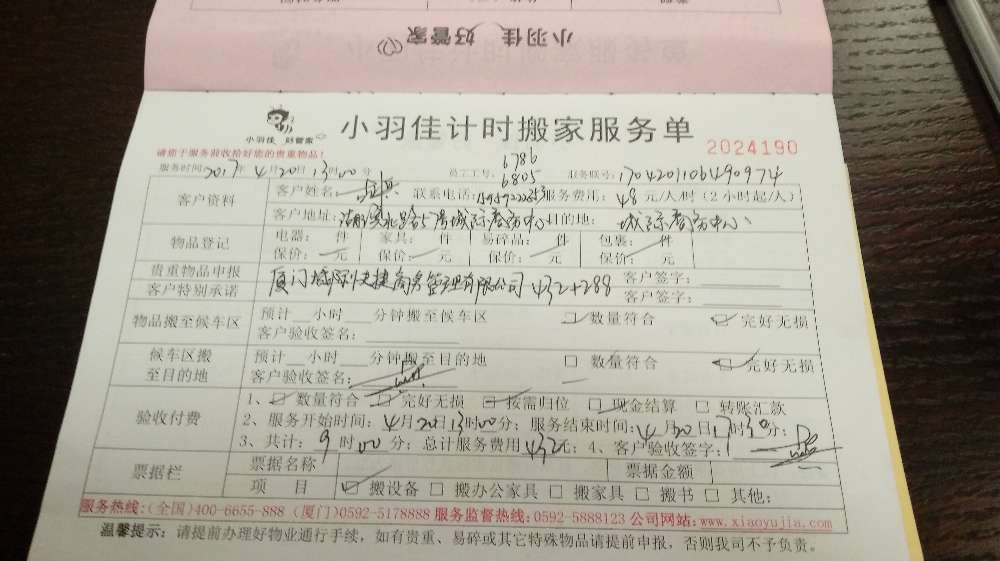 小羽佳 好管家
小羽佳 好管家
小羽佳计时搬家服务单
2024190
请您于服务前收拾好您的贵重物品!
服务时间:2017年4月20日13时00分 员工工号: 6786 6805 服务账号:1704201106490974
客户资料
客户姓名: 联系电话: 服务费用: 48 元/人/时(2小时起/人)
客户地址: 城际商务中心 目的地: 城际商务中心
物品登记
电器: 件 家具: 件 易碎品: 件 包裹: 件
保价: 元 保价: 元 保价: 元 保价: 元
贵重物品申报
客户签字:
厦门城际快捷商务管理有限公司 432+288
客户特别承诺
客户签字:
物品搬至候车区
预计 小时 分钟搬至候车区 数量符合 完好无损
客户验收签名:
候车区搬至目的地
预计 小时 分钟搬至目的地 数量符合 完好无损
客户验收签名:
验收付费
1、 数量符合 完好无损 按需归位 现金结算 转账汇款
2、服务开始时间:4月20日13时00分;服务结束时间:4月20日17时30分;
3、共计:9时00分;总计服务费用432元;4、客户验收签字:
票据栏
票据名称 票据金额
项 目 搬设备 搬办公家具 搬家具 搬书 其他:
服务热线:(全国)400-6655-888 (厦门)0592-5178888 服务监督热线:0592-5888123 公司网站:www.xiaoyujia.com
温馨提示:请提前办理好物业通行手续,如有贵重、易碎或其它特殊物品请提前申报,否则我司不予负责。